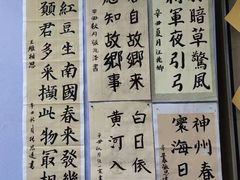 暗草驚風
將軍夜引弓
神州春
寰海日
君自故鄉來
應知故鄉事
白日依
黃河入
紅豆生南國春來發幾
願君多采擷此物最相
王維相思